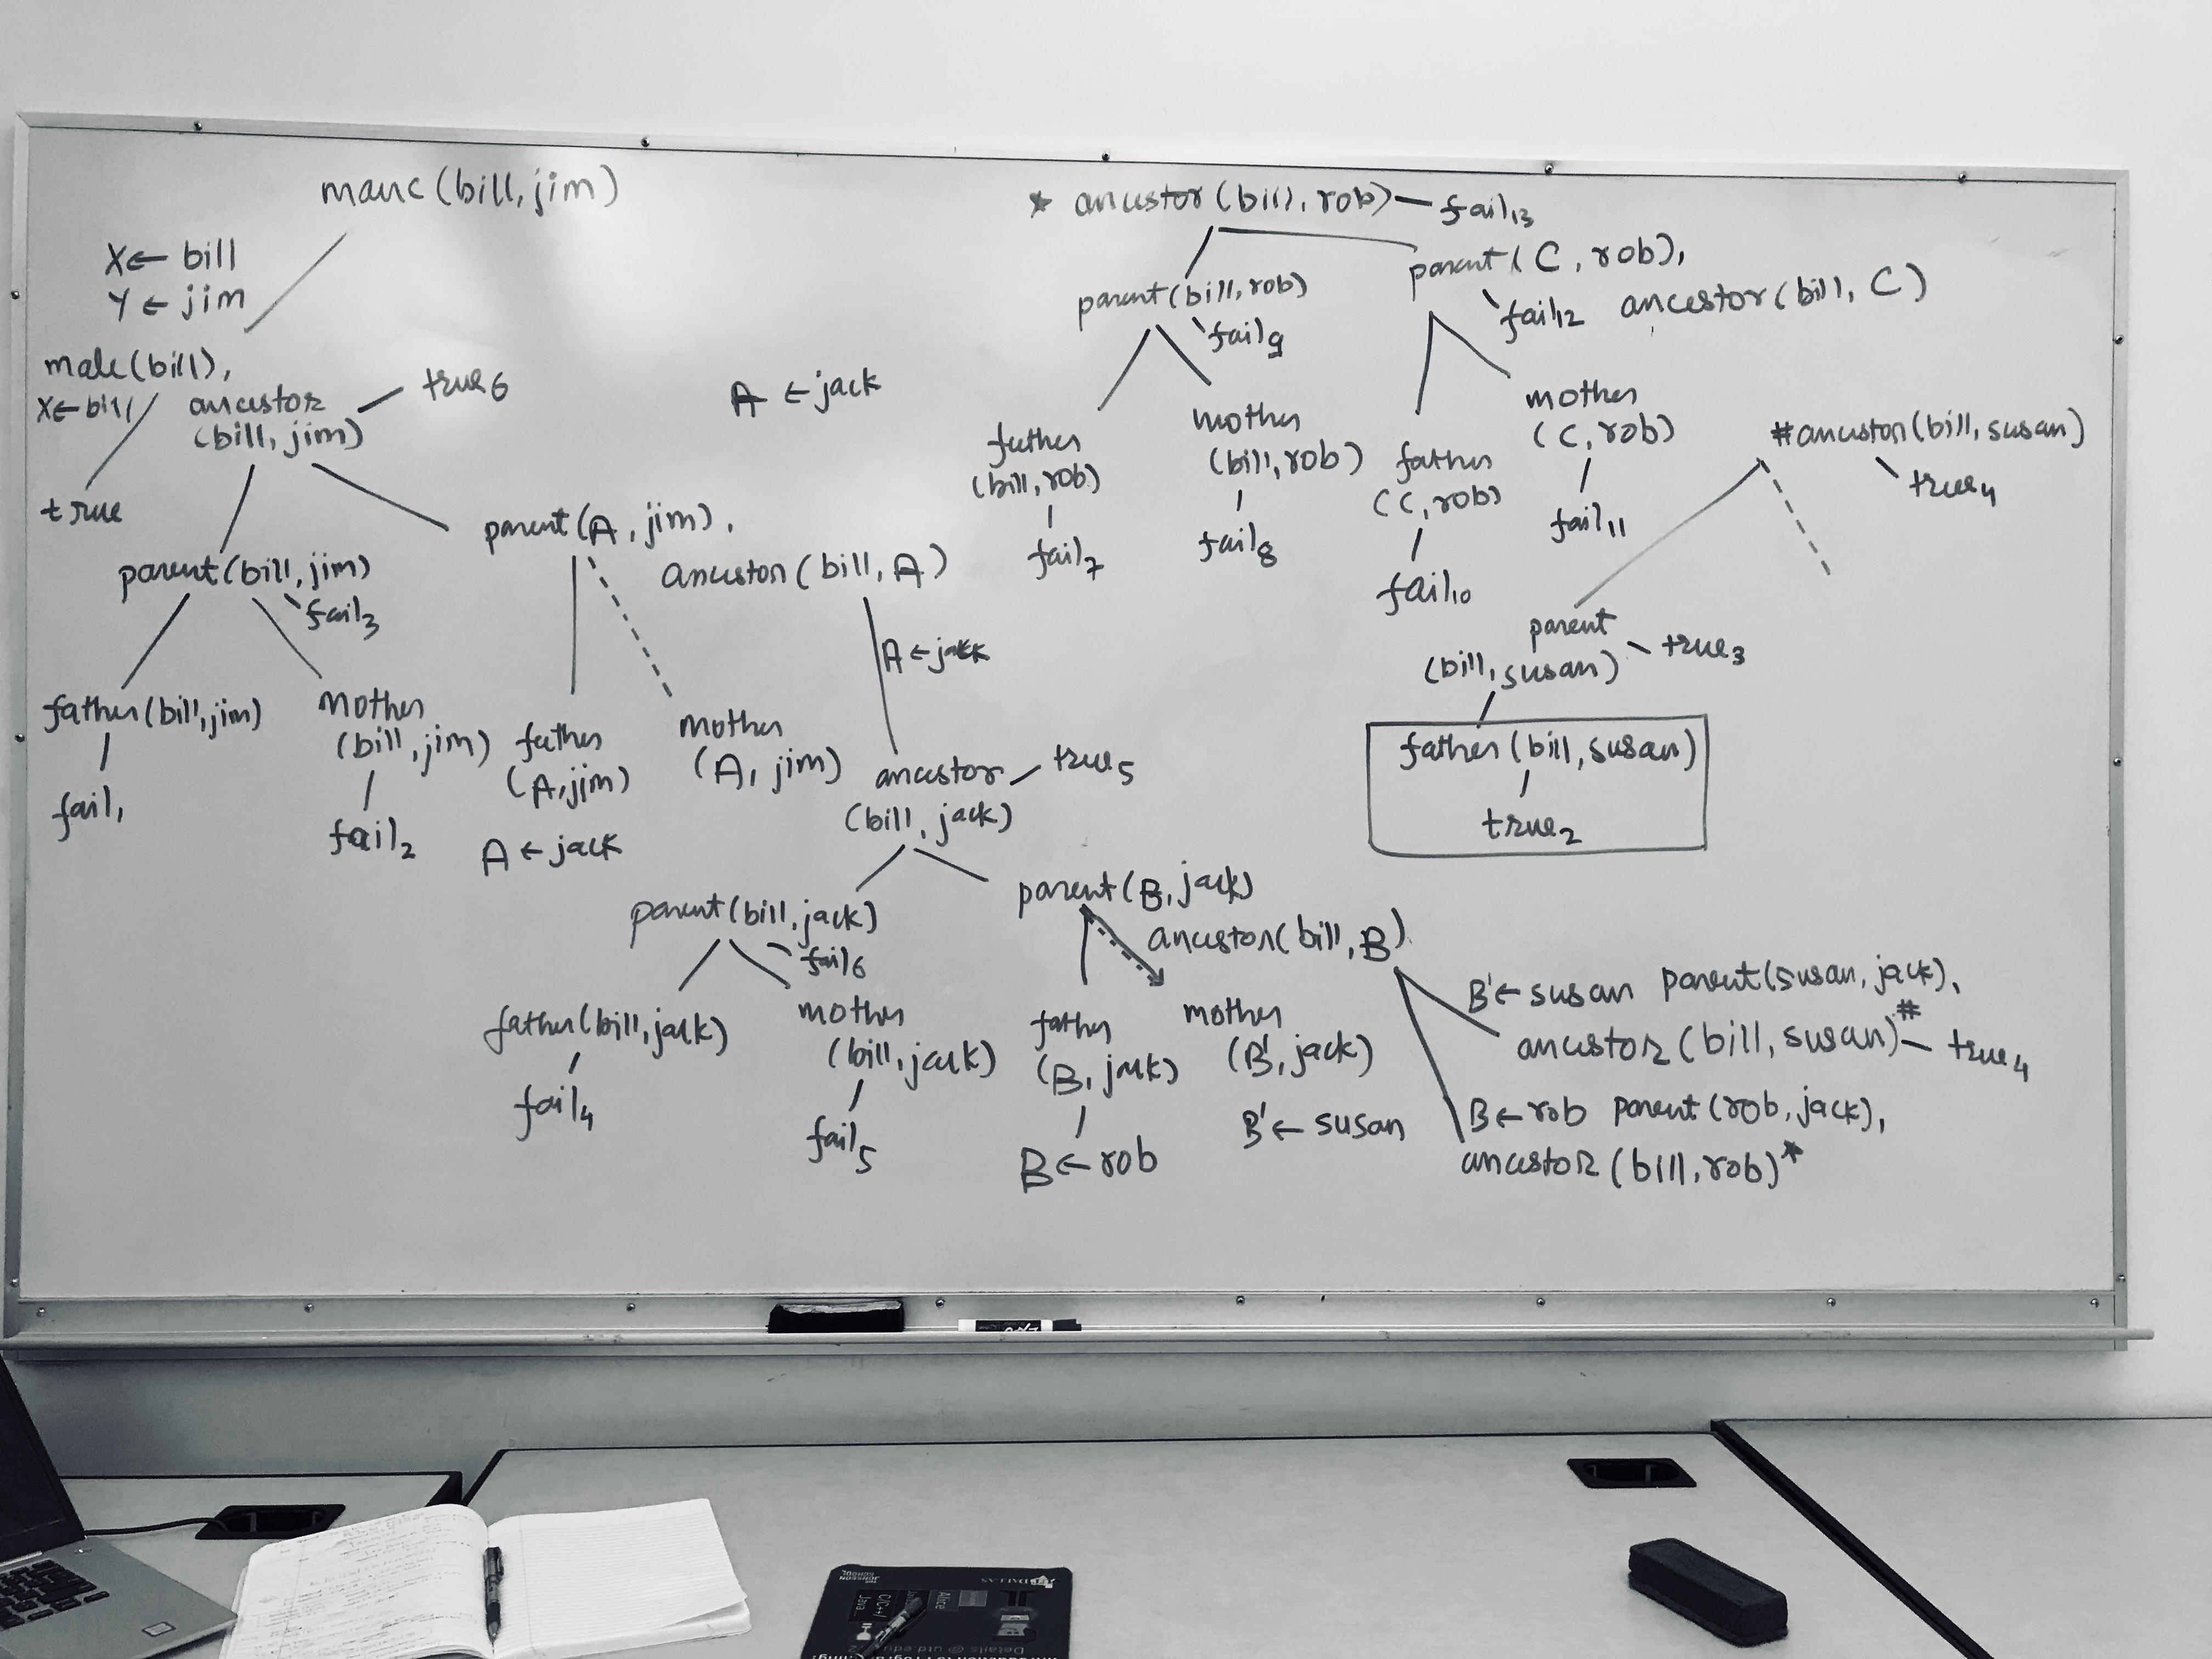 manc(bill,jim)
X← bill
Y ← jim
male(bill),
X←bill
ancestor
(bill, jim)
true6
true
parent(bill,jim)
fail3
father(bill,jim)
fail1
mother
(bill,jim)
fail2
A ← jack
parent(A, jim),
ancestor(bill, A)
father
(A,jim)
A ← jack
mother
(A, jim)
A ← jack
ancestor
(bill, jack)
true5
parent(bill,jack)
fail6
father(bill,jack)
fail4
mother
(bill,jack)
fail5
parent(B,jack)
ancestor(bill,B)
father
(B, jack)
B ← rob
mother
(B', jack)
B' ← susan
B'← susan parent(susan, jack),
ancestor (bill, susan)# true4
B← rob parent(rob, jack),
ancestor (bill, rob)*
* ancestor (bill, rob) fail13
parent(bill,rob)
fail9
father
(bill, rob)
fail7
mother
(bill, rob)
fail8
parent( C, rob),
fail12 ancestor(bill, C)
father
(C, rob)
fail10
mother
(C, rob)
fail11
#ancestor(bill, susan)
true4
parent
(bill, susan)
true3
father (bill, susan)
true2
DALLAS
Alice
C/C++/
Java
Details @ utd.edu